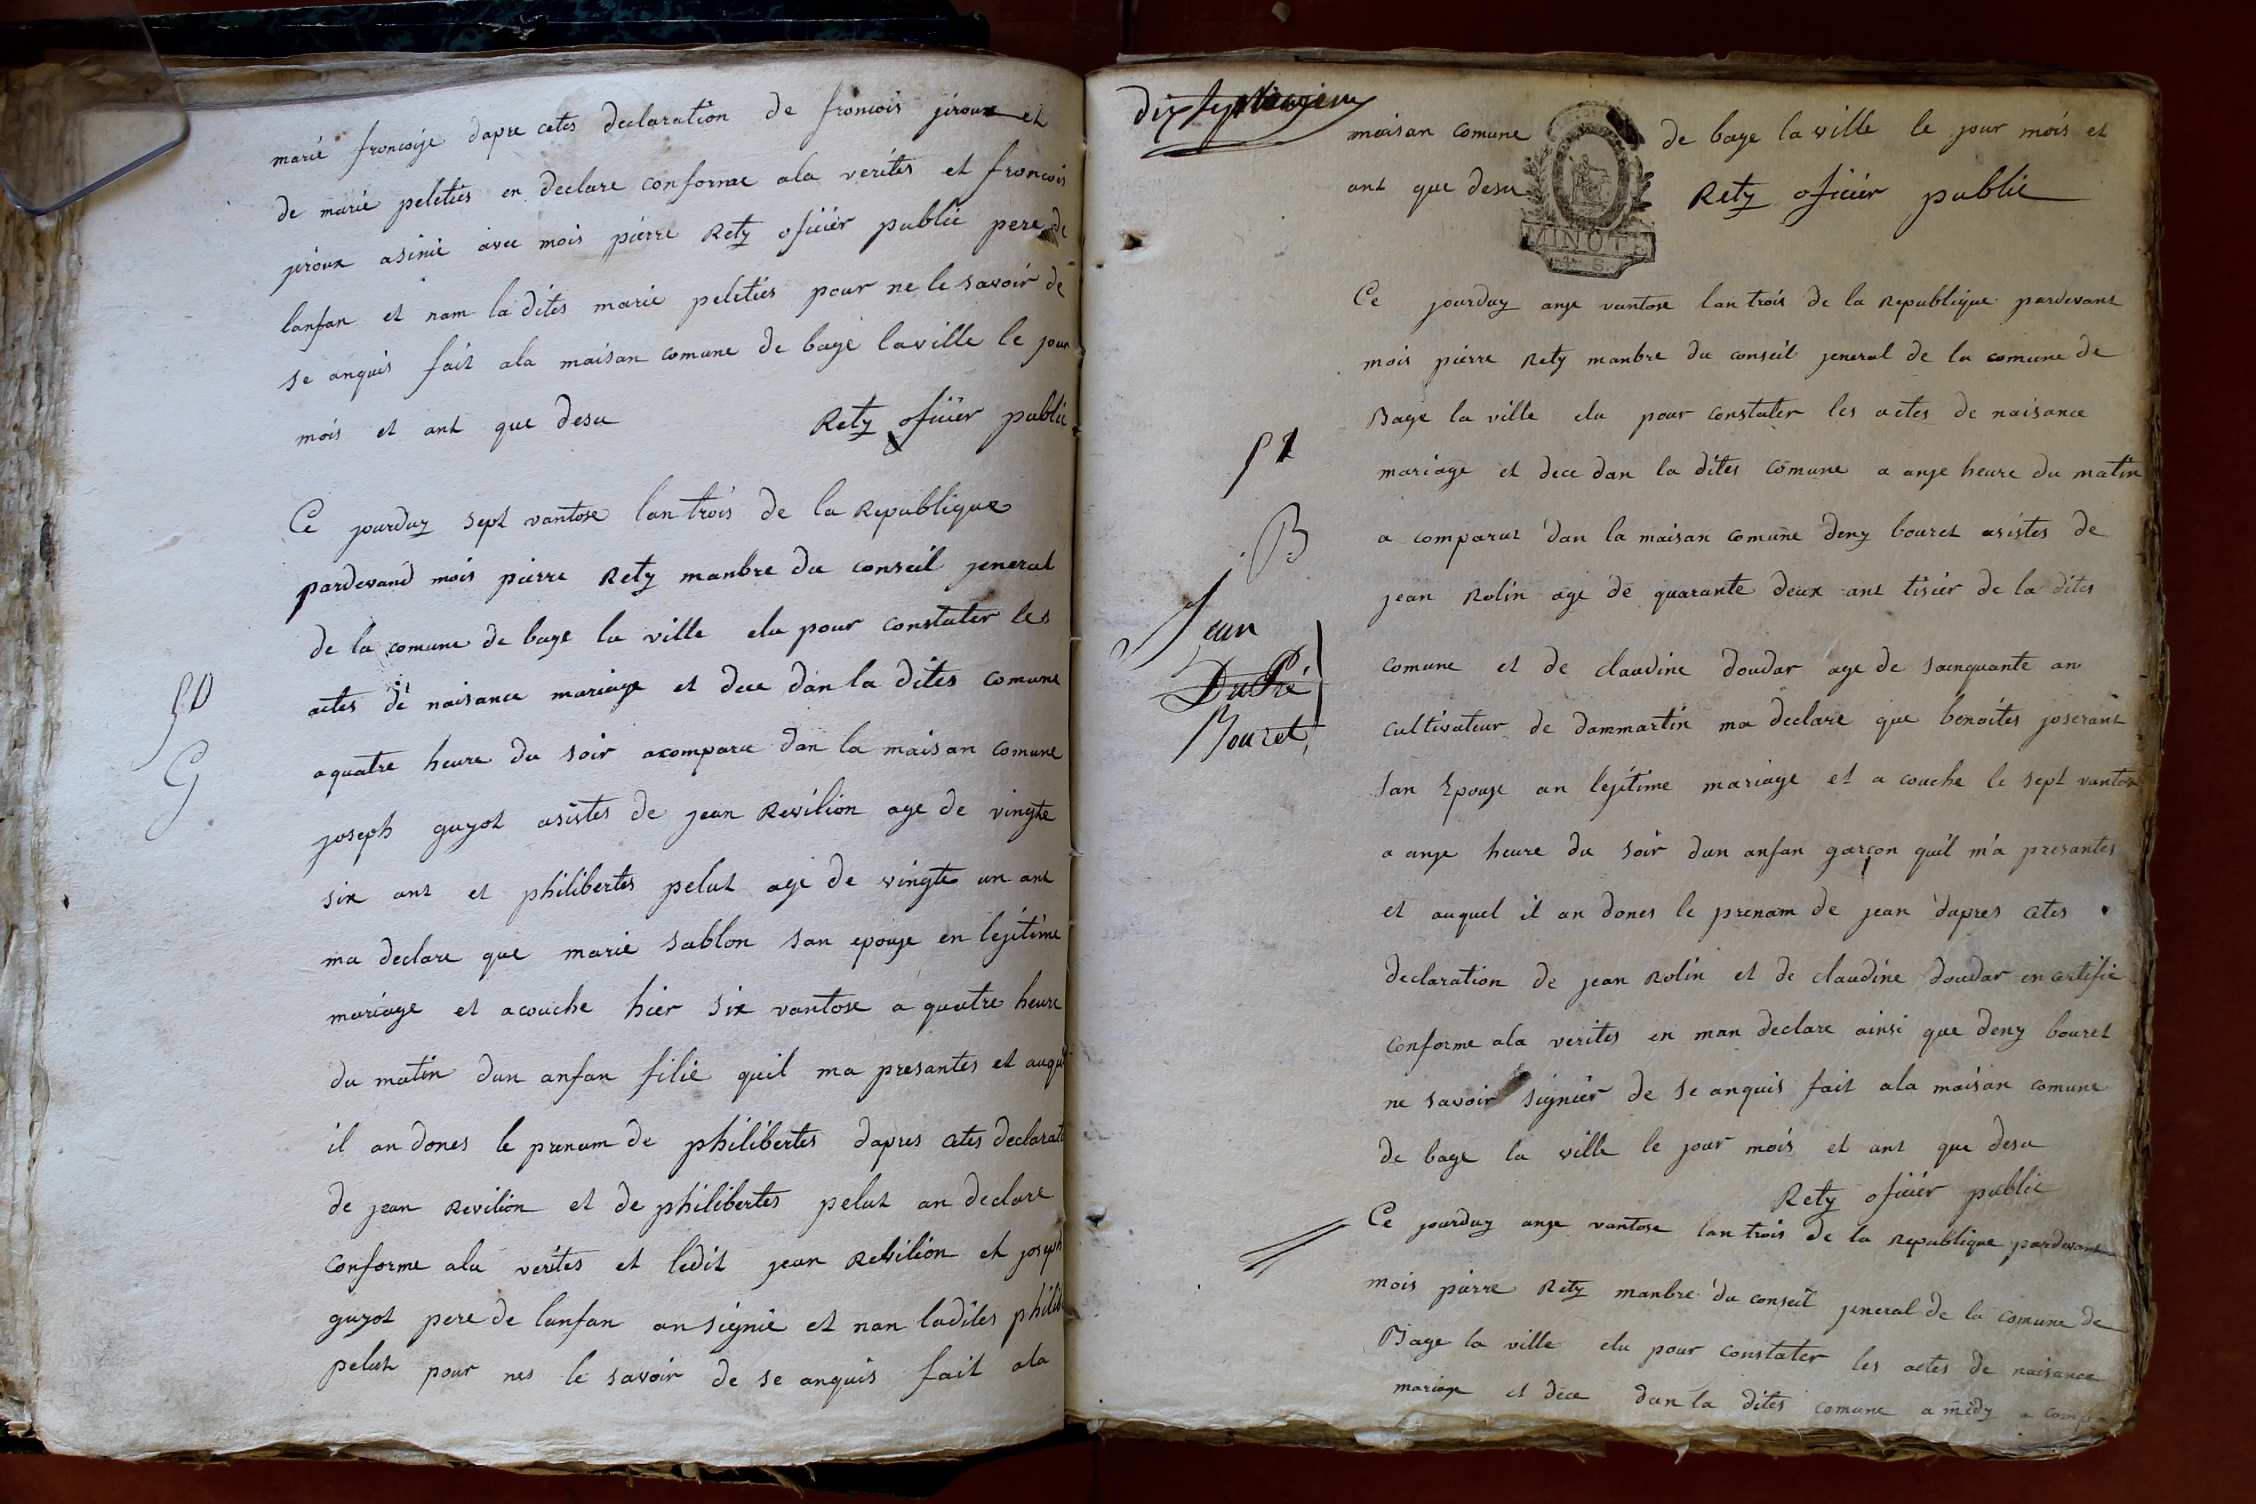 marie froncoise dapre cetes declaration de froncois jiroux et
de marie peleties en declare conforme ala verites et froncois
jiroux asinie avec mois pierre Rety oficier public pere de
lanfan et nam la dites marie peleties pour ne le savoir de
se anquis fait ala maisan comune de bagé laville le jour
mois et ant que desu Rety oficier public
Ce jourduy sept vantose lan trois de la Republique
pardevand mois pierre Rety manbre du conseil jeneral
de la comune de bage la ville elu pour constater les
actes de naisance mariage et dece dan la dites comune
aquatre heure du soir acomparu dan la maisan comune
G
joseph guyot asistes de jean Revilion age de vingte
six ant et philibertes pelut age de vingte un ant
ma declare que marie sablon san epouse en lejitime
mariage et acouche hier six vantose a quatre heure
du matin dun anfan filie quil ma presantes et auquel
il an dones le prenam de philibertes dapres cetes declarat
de jean Revilion et de philibertes pelut an declare
conforme ala verites et ledit jean Revilion et joseph
guyot pere de lanfan an signie et nan ladites philib
pelut pour nes le savoir de se anquis fait ala
maisan comune de bage la ville le jour mois et
MINUTE
ant que desu Rety oficier public
Ce jourduy anze vantose lan trois de la Republique pardevant
mois pierre Rety manbre du conseil jeneral de la comune de
Bage la ville elu pour constater les actes de naisance
51
mariage et dece dan la dites comune a anze heure du matin
B
a comparut dan la maisan comune deny bouret asistes de
jean Rolin age de quarante deux ant tisier de la dites
Jean
DuPré
Bouret
comune et de claudine doudar age de sainquante an
cultivateur de dammartin ma declare que benoites joserant
san Epouse an lejitime mariage et a couche le sept vantose
a anze heure du soir dun anfan garçon quil m'a presantes
et auquel il an dones le prenam de jean dapres cetes
declaration de jean Rolin et de claudine doudar en certifie
conforme ala verites en man declare ainsi que deny bouret
ne savoir signier de se anquis fait ala maisan comune
de bage la ville le jour mois et ant que desu
Rety oficier public
Ce jourduy anze vantose lan trois de la Republique pardevant
mois pierre Rety manbre du conseil jeneral de la comune de
Bage la ville elu pour constater les actes de naisance
mariage et dece dan la dites comune a midy a compa